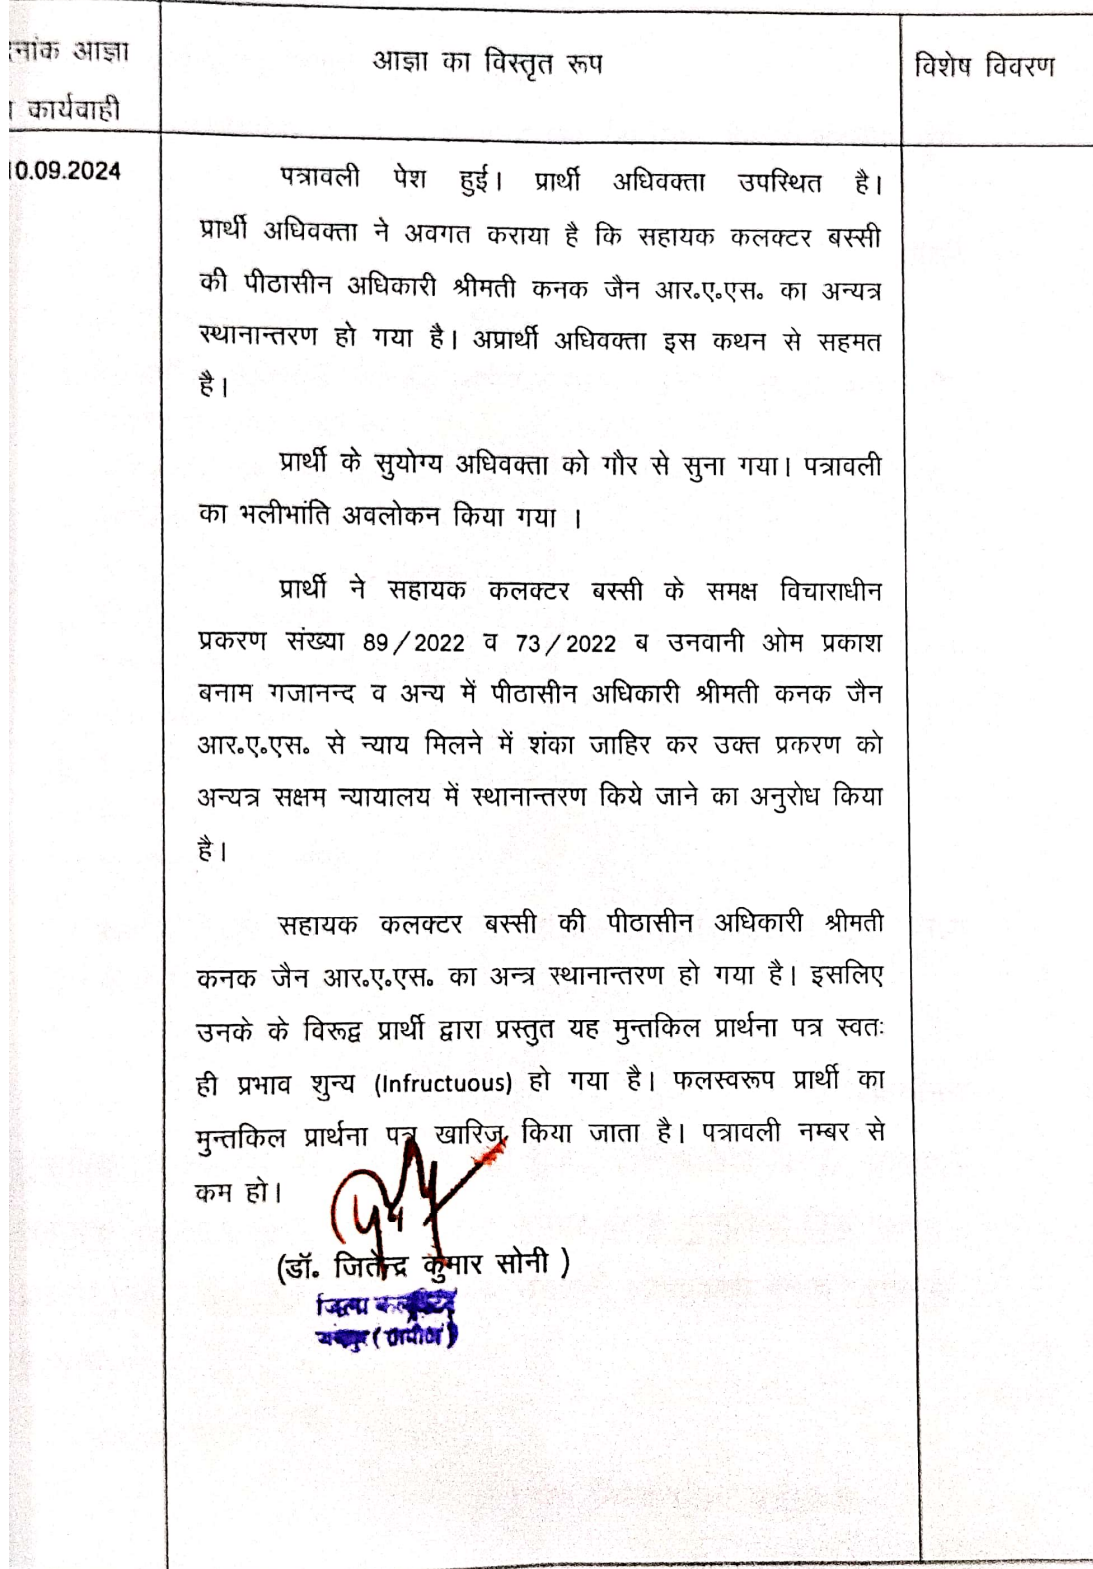 दिनांक आज्ञा
आज्ञा का विस्तृत रूप
विशेष विवरण
कार्यवाही
10.09.2024
पत्रावली पेश हुई। प्रार्थी अधिवक्ता उपस्थित है।
प्रार्थी अधिवक्ता ने अवगत कराया है कि सहायक कलक्टर बस्सी
की पीठासीन अधिकारी श्रीमती कनक जैन आर०ए०एस० का अन्यत्र
स्थानान्तरण हो गया है। अप्रार्थी अधिवक्ता इस कथन से सहमत
है।
प्रार्थी के सुयोग्य अधिवक्ता को गौर से सुना गया। पत्रावली
का भलीभांति अवलोकन किया गया ।
प्रार्थी ने सहायक कलक्टर बस्सी के समक्ष विचाराधीन
प्रकरण संख्या 89/2022 व 73/2022 ब उनवानी ओम प्रकाश
बनाम गजानन्द व अन्य में पीठासीन अधिकारी श्रीमती कनक जैन
आर०ए०एस० से न्याय मिलने में शंका जाहिर कर उक्त प्रकरण को
अन्यत्र सक्षम न्यायालय में स्थानान्तरण किये जाने का अनुरोध किया
है।
सहायक कलक्टर बस्सी की पीठासीन अधिकारी श्रीमती
कनक जैन आर०ए०एस० का अन्त्र स्थानान्तरण हो गया है। इसलिए
उनके के विरूद्व प्रार्थी द्वारा प्रस्तुत यह मुन्तकिल प्रार्थना पत्र स्वतः
ही प्रभाव शुन्य (Infructuous) हो गया है। फलस्वरूप प्रार्थी का
मुन्तकिल प्रार्थना पत्र खारिज किया जाता है। पत्रावली नम्बर से
कम हो।
(डॉ० जितेन्द्र कुमार सोनी )
जिला कलक्टर